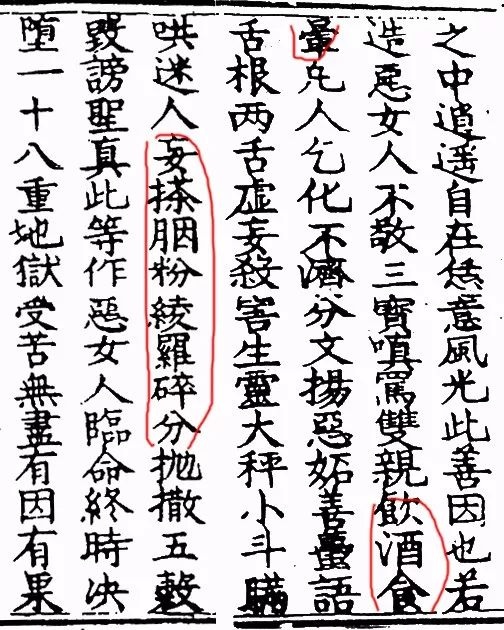 之中逍遥自在恁意風光此善因也若
造惡女人不敬三寶嗔罵雙親飲酒食
暈凢人乞化不濟分文揚惡妬善語
舌根两舌虛妄殺害生靈大秤小斗瞞
哄迷人妄搽胭粉綾羅碎分抛撒五穀
毀謗聖真此等作惡女人臨命終時决
墮一十八重地獄受苦無盡有因有果